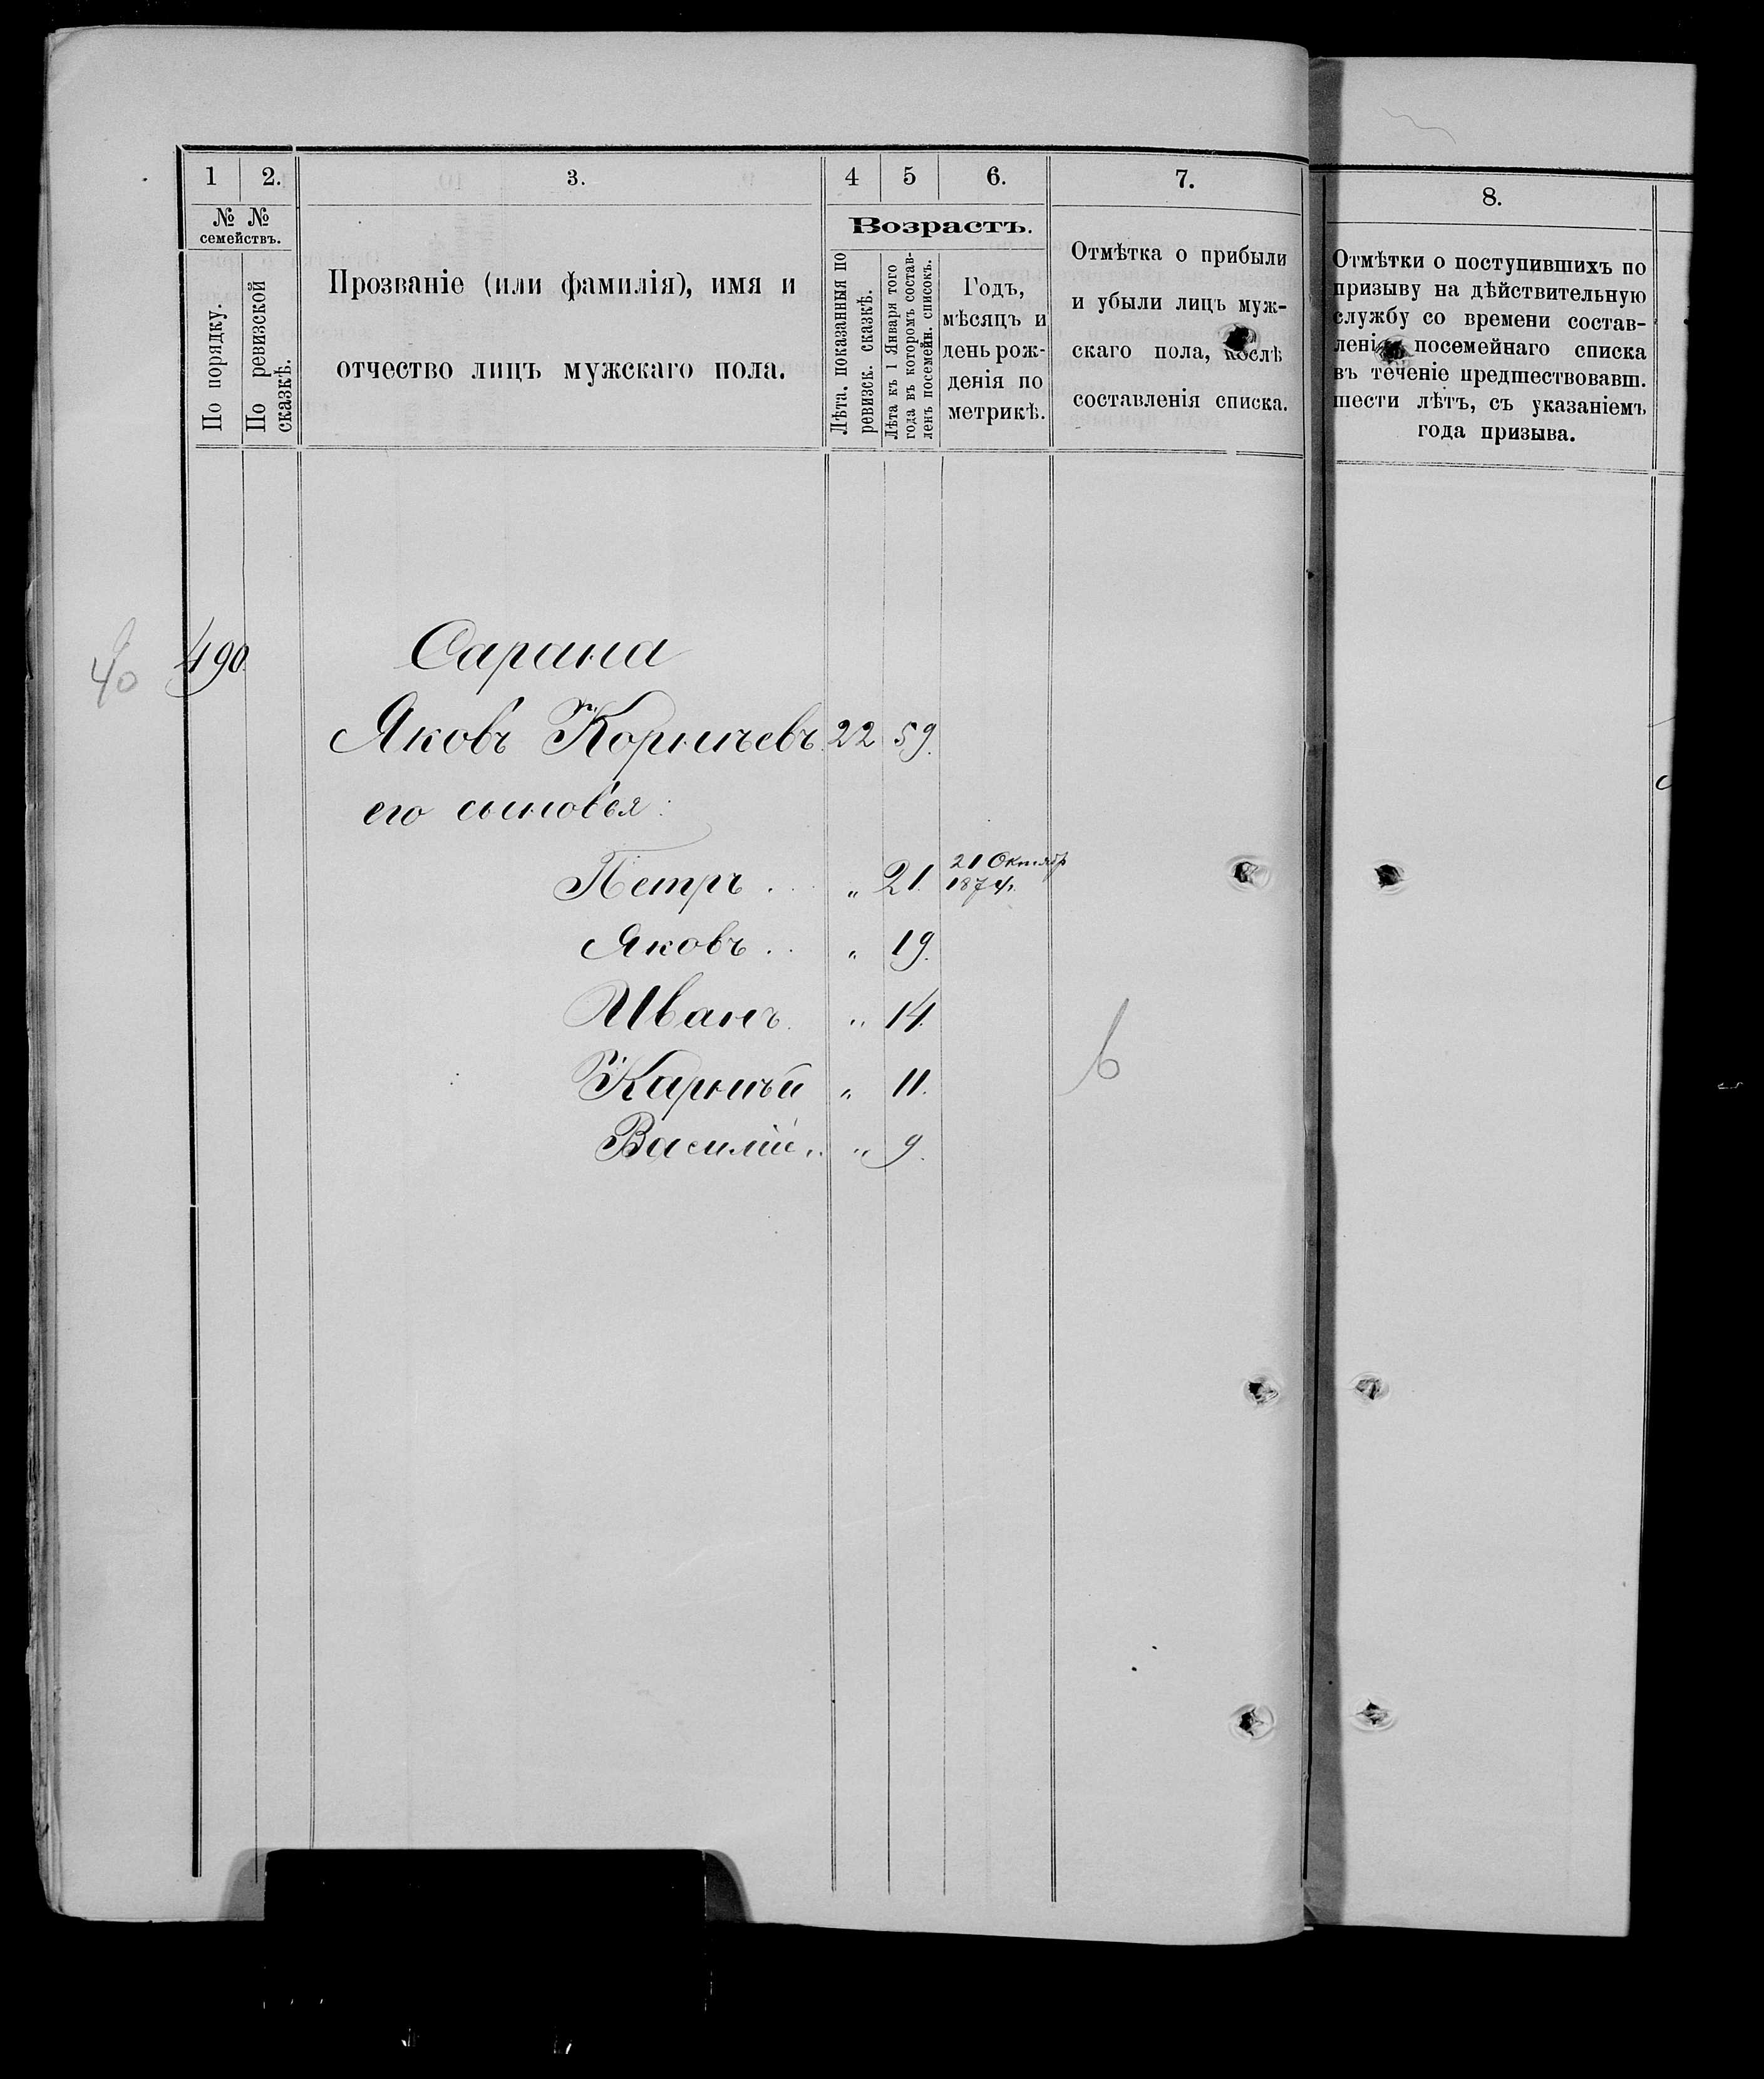 1 2. 3. 4 5 6. 7. 8.
№ №
семействъ.
По порядку.
По ревизской
сказкѣ.
Прозваніе (или фамилія), имя и
отчество лицъ мужскаго пола.
Возрастъ.
Лѣта. показанныя по
ревизск. сказкѣ.
Лѣта къ 1 Января того
года въ которомъ состав-
ленъ посемейн. списокъ.
Годъ,
мѣсяцъ и
день рож-
денія по
метрикѣ.
Отмѣтка о прибыли
и убыли лицъ муж-
скаго пола, послѣ
составленія списка.
Отмѣтки о поступившихъ по
призыву на дѣйствительную
службу со времени состав-
лені посемейнаго списка
въ теченіе предшествовавш.
шести лѣтъ, съ указаніемъ
года призыва.
40 490 Сарана
Яковъ Корнѣевъ 22 59.
его сыновья:
Петръ . . „ 21. 21 Октябр
1874.
Яковъ . . „ 19.
Иванъ. „ 14.
Карнѣй „ 11.
Василій . „ 9.
6